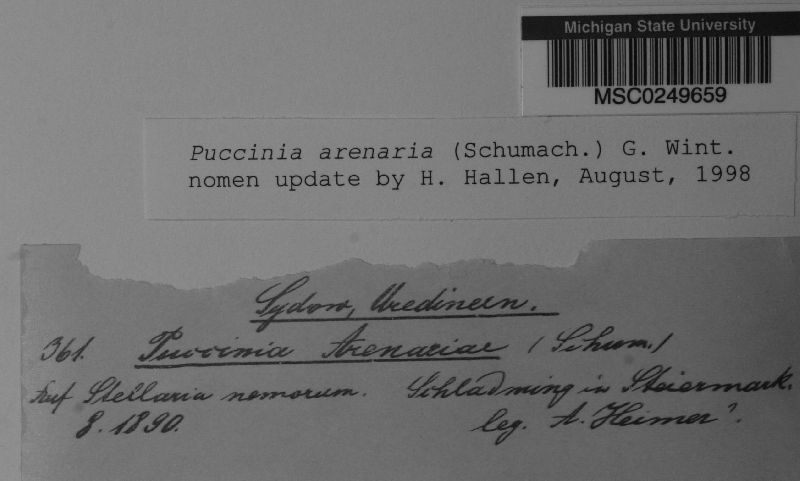 Michigan State University
MSC0249659
Puccinia arenaria (Schumach.) G. Wint.
nomen update by H. Hallen, August, 1998
Sydow, Uredineen.
361. Puccinia Arenariae (Schum.)
Auf Stellaria nemorum. Schladming in Steiermark.
8. 1890. leg. A. Heimer?.